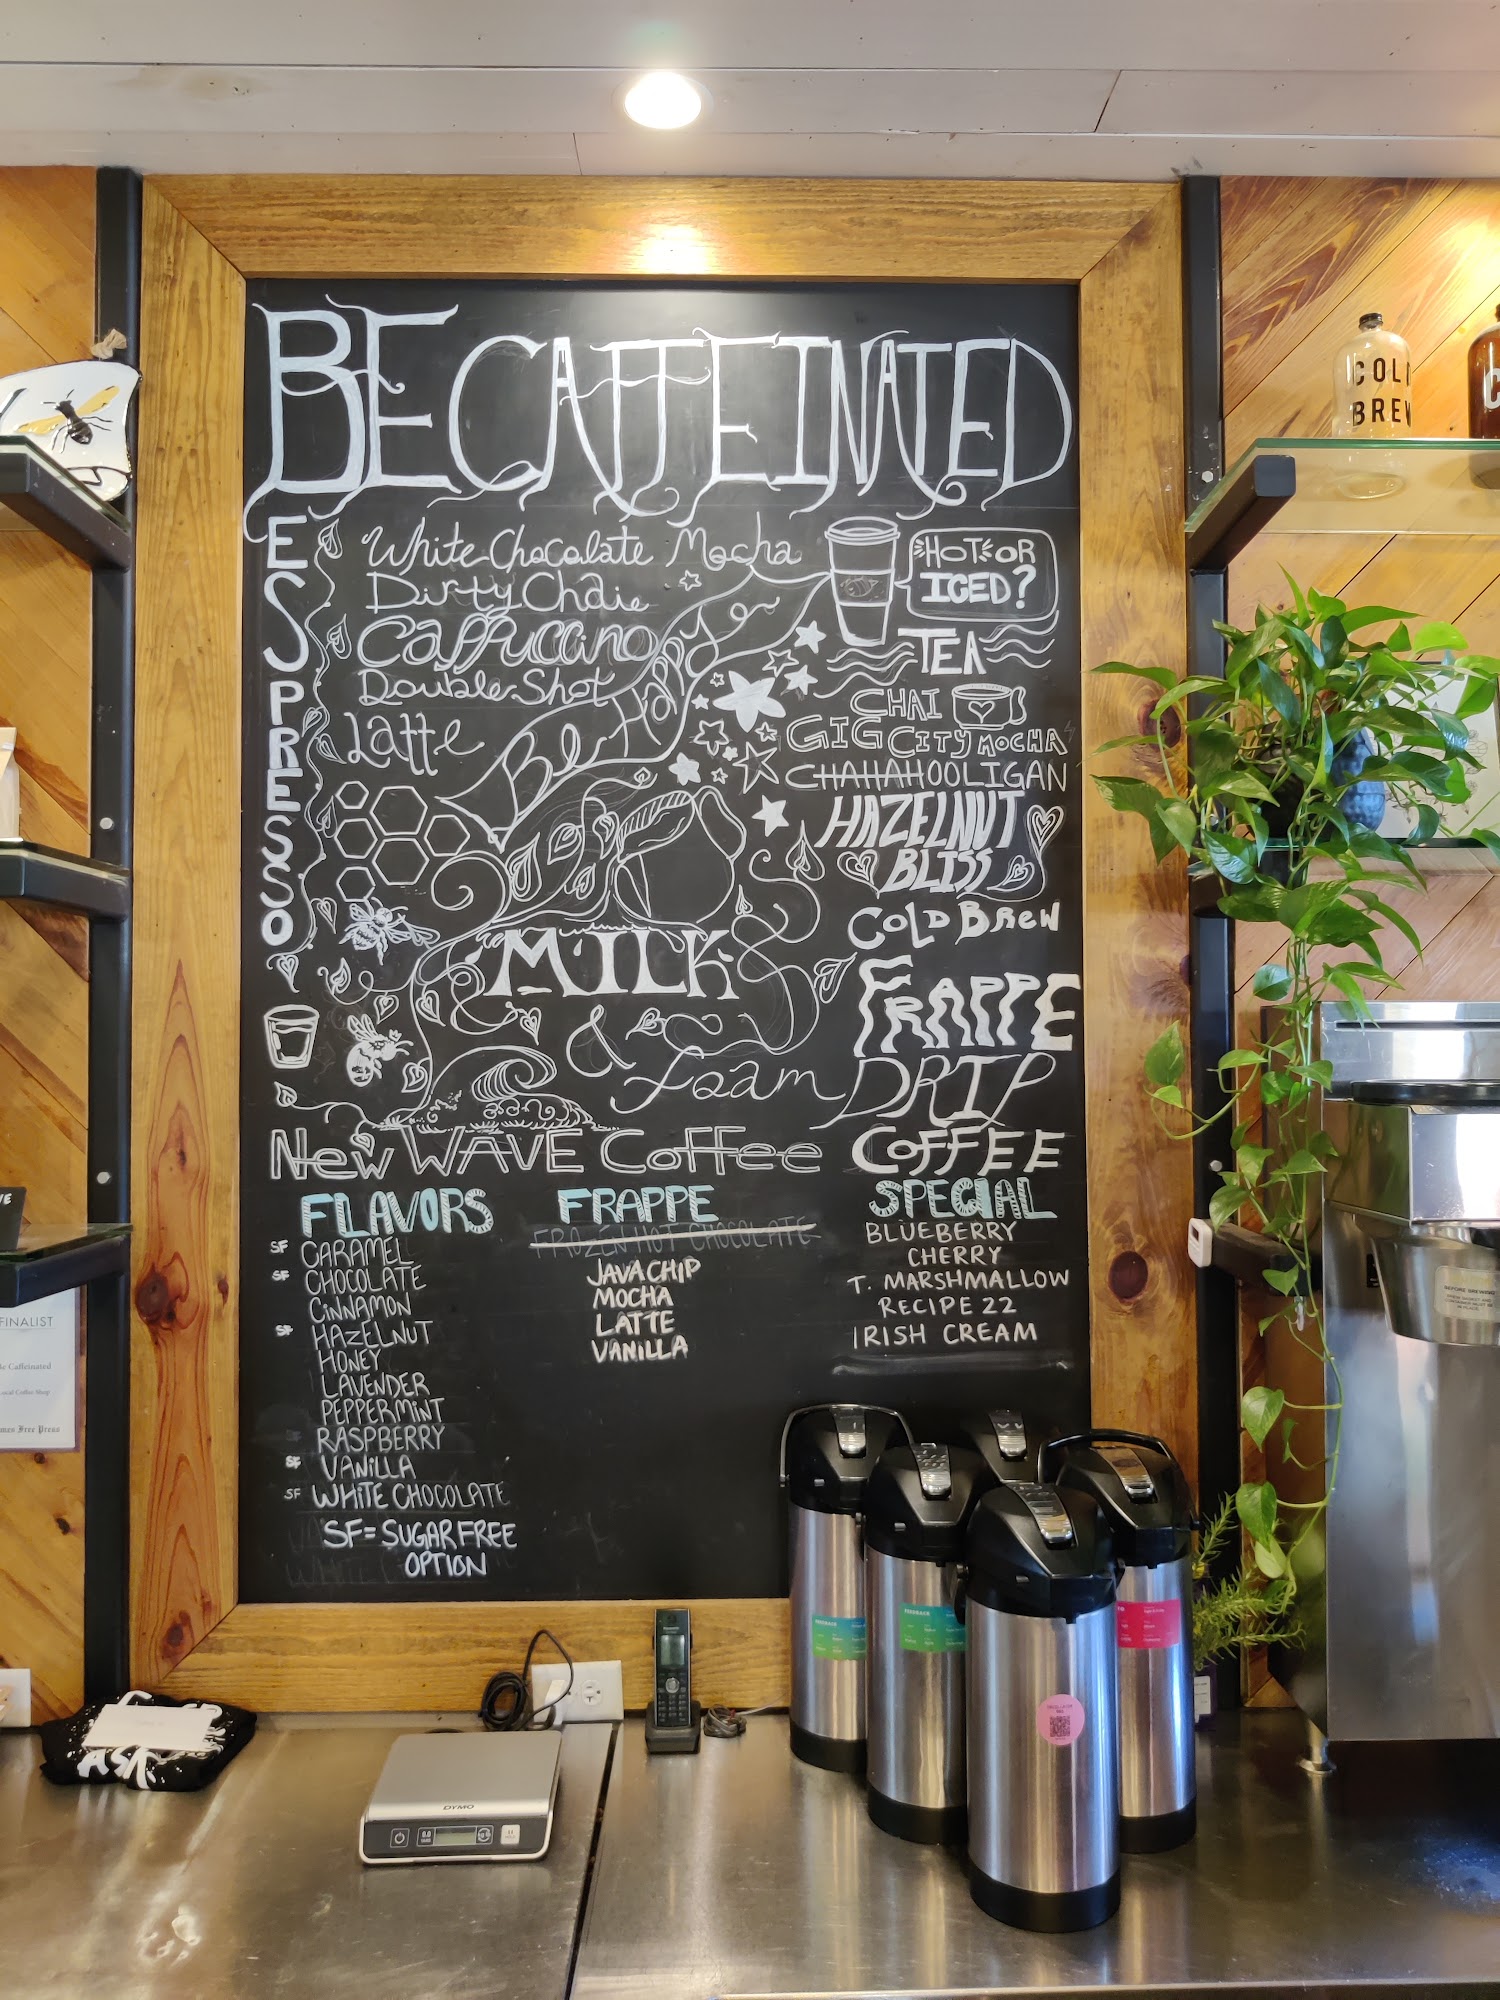 BE CAFFEINATED
ESPRESSO
White Chocolate Mocha
Dirty Chaie
Cappuccino
Double Shot
Latte
Be Happy
HOT OR
ICED?
TEA
CHAI
GIG CITY MOCHA
CHAHAHOOLIGAN
HAZELNUT
BLISS
COLD BREW
FRAPPE
MILK
&
foam
DRIP
COFFEE
New WAVE Coffee
FLAVORS
SF CARAMEL
SF CHOCOLATE
CINNAMON
SF HAZELNUT
HONEY
LAVENDER
PEPPERMINT
RASPBERRY
SF VANILLA
SF WHITE CHOCOLATE
SF = SUGAR FREE
OPTION
FRAPPE
FROZEN HOT CHOCOLATE
JAVA CHIP
MOCHA
LATTE
VANILLA
SPECIAL
BLUEBERRY
CHERRY
T. MARSHMALLOW
RECIPE 22
IRISH CREAM
COLD
BREW
FINALIST
Be Caffeinated
Local Coffee Shop
Free Press
BEFORE BREWING
DYMO
Panasonic